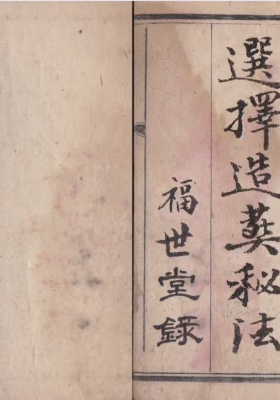 選擇造葬秘法
福世堂錄